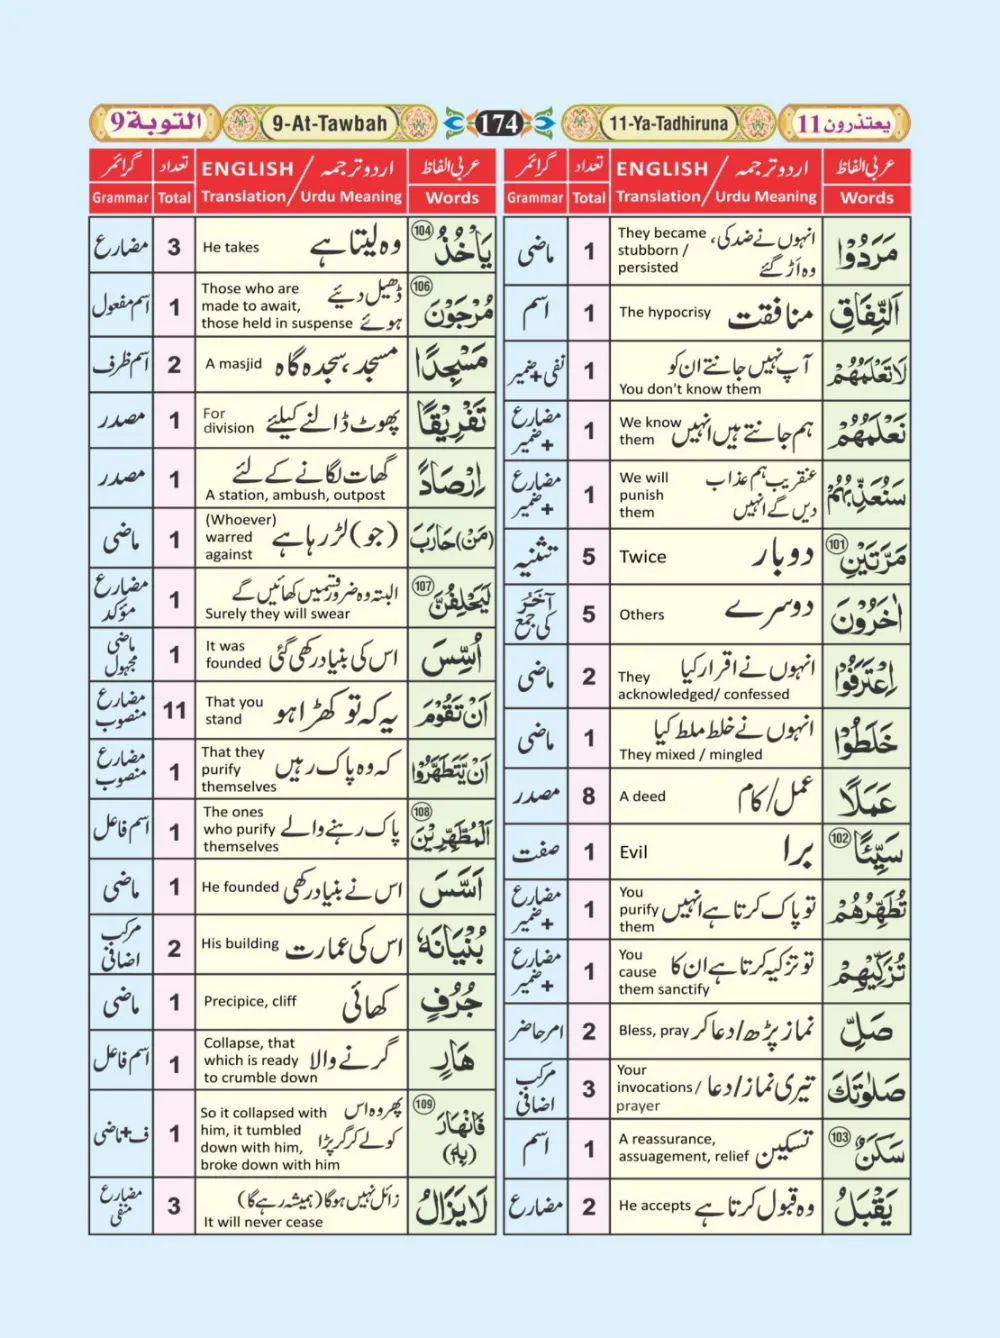 التوبة 9
9-At-Tawbah
174
11-Ya-Tadhiruna
یعتذرون 11
عربی الفاظ اردو ترجمہ / ENGLISH تعداد گرائمر
Words Urdu Meaning / Translation Total Grammar
مَرَدُوْا انہوں نے ضد کی، وہ اَڑ گئے They became stubborn / persisted 1 ماضی
اَلنِّفَاقِ منافقت The hypocrisy 1 اسم
لَا تَعْلَمُهُمْ آپ نہیں جانتے ان کو You don't know them 1 نفی + ضمیر
نَعْلَمُهُمْ ہم جانتے ہیں انہیں We know them 1 مضارع + ضمیر
سَنُعَذِّبُهُمْ عنقریب ہم عذاب دیں گے انہیں We will punish them 1 مضارع + ضمیر
مَرَّتَيْنِ 101 دو بار Twice 5 تثنیہ
اٰخَرُوْنَ دوسرے Others 5 آخَرُ کی جمع
اِعْتَرَفُوْا انہوں نے اقرار کیا They acknowledged/ confessed 2 ماضی
خَلَطُوْا انہوں نے خلط ملط کیا They mixed / mingled 1 ماضی
عَمَلًا عمل/کام A deed 8 مصدر
سَيِّئًا 102 برا Evil 1 صفت
تُطَهِّرُهُمْ تو پاک کرتا ہے انہیں You purify them 1 مضارع + ضمیر
تُزَكِّيْهِمْ تو تزکیہ کرتا ہے ان کا You cause them sanctify 1 مضارع + ضمیر
صَلِّ نماز پڑھ/دعا کر Bless, pray 2 امر حاضر
صَلٰوتَكَ تیری نماز/دعا Your invocations / prayer 3 مرکب اضافی
سَكَنٌ 103 تسکین A reassurance, assuagement, relief 1 اسم
يَقْبَلُ وہ قبول کرتا ہے He accepts 2 مضارع
عربی الفاظ اردو ترجمہ / ENGLISH تعداد گرائمر
Words Urdu Meaning / Translation Total Grammar
يَاْخُذُ 104 وہ لیتا ہے He takes 3 مضارع
مُرْجَوْنَ 106 ڈھیل دیئے ہوئے Those who are made to await, those held in suspense 1 اسم مفعول
مَسْجِدًا مسجد، سجدہ گاہ A masjid 2 اسم ظرف
تَفْرِيْقًا پھوٹ ڈالنے کیلئے For division 1 مصدر
اِرْصَادًا گھات لگانے کے لئے A station, ambush, outpost 1 مصدر
(مَنْ) حَارَبَ (جو) لڑ رہا ہے (Whoever) warred against 1 ماضی
لَيَحْلِفُنَّ 107 البتہ وہ ضرور قسمیں کھائیں گے Surely they will swear 1 مضارع مؤکد
اُسِّسَ اس کی بنیاد رکھی گئی It was founded 1 ماضی مجہول
اَنْ تَقُوْمَ یہ کہ تو کھڑا ہو That you stand 11 مضارع منصوب
اَنْ يَّتَطَهَّرُوْا کہ وہ پاک رہیں That they purify themselves 1 مضارع منصوب
اَلْمُطَّهِّرِيْنَ 108 پاک رہنے والے The ones who purify themselves 1 اسم فاعل
اَسَّسَ اس نے بنیاد رکھی He founded 1 ماضی
بُنْيَانَهٗ اس کی عمارت His building 2 مرکب اضافی
جُرُفٍ کھائی Precipice, cliff 1 ماضی
هَارٍ گرنے والا Collapse, that which is ready to crumble down 1 اسم فاعل
فَانْهَارَ (بِهٖ) 109 پھر وہ اس کو لے کر گر پڑا So it collapsed with him, it tumbled down with him, broke down with him 1 ف + ماضی
لَا يَزَالُ زائل نہیں ہوگا (ہمیشہ رہے گا) It will never cease 3 مضارع منفی